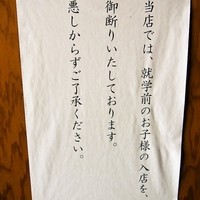 当店では、就学前のお子様の入店を、
御断りいたしております。
悪しからずご了承ください。